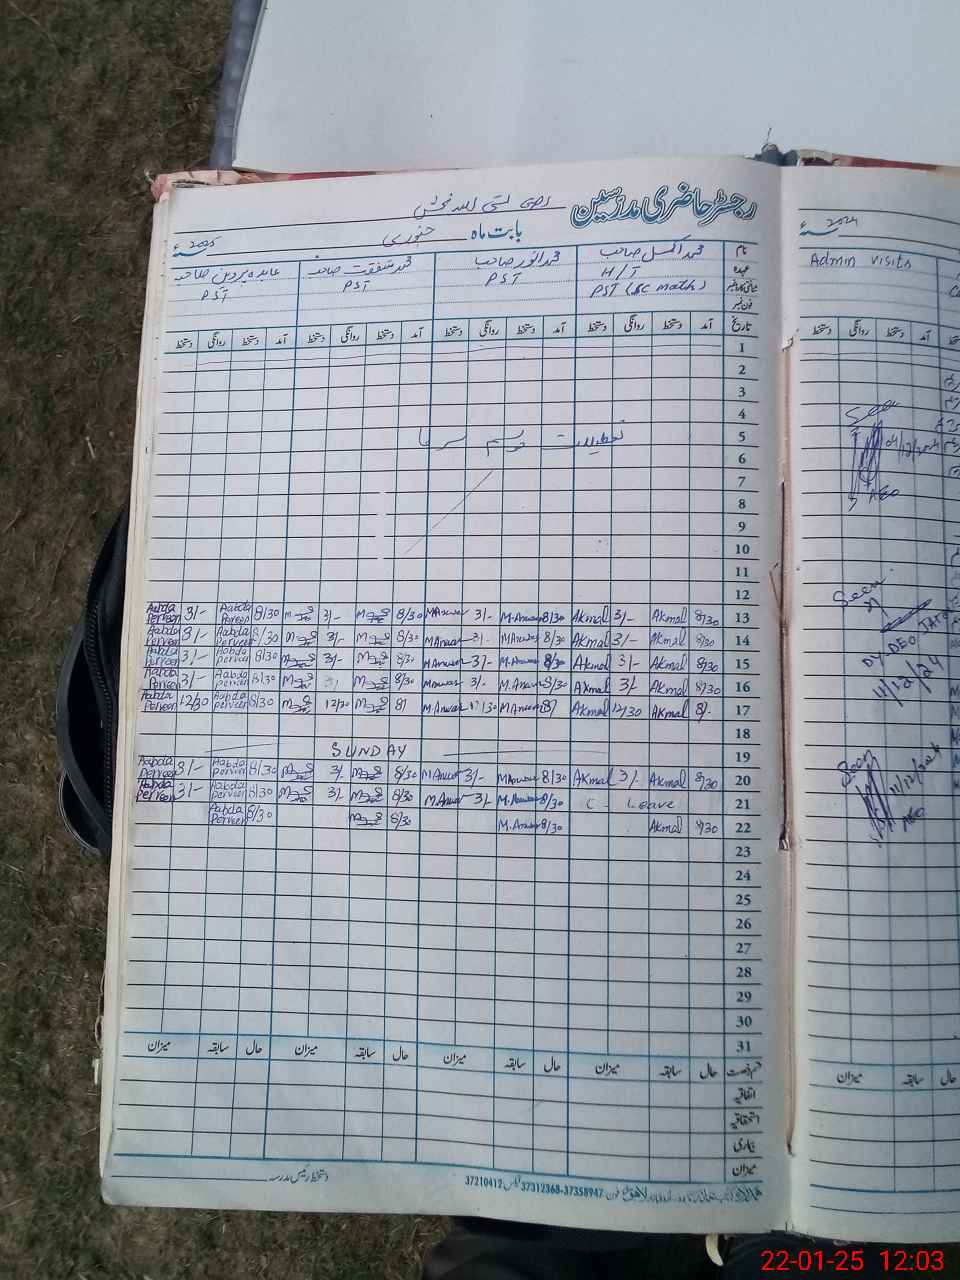 رجسٹر حاضری مدرسین
بابت ماہ جنوری 2025
نام محمد اکمل صاحب محمد انور صاحب محمد شفقت صاحب عابدہ پروین صاحبہ
عہدہ H/T PST PST PST
PST (Sc math)
فون نمبر
تاریخ آمد دستخط روانگی دستخط آمد دستخط روانگی دستخط آمد دستخط روانگی دستخط آمد دستخط روانگی دستخط
1
2
3
4
تعطیلات موسم سرما 5
6
7
8
9
10
11
12
Aabda Perveen 3/- Aabda Perveen 8/30 3/- 8/30 M Anwar 3/- M.Anwar 8/30 Akmal 3/- Akmal 8/30 13
Aabda Perveen 3/- Aabda Perveen 8/30 3/- 8/30 M Anwar 3/- M Anwar 8/30 Akmal 3/- Akmal 8/30 14
Aabda Perveen 3/- Aabda Perveen 8/30 3/- 8/30 M Anwar 3/- M.Anwar 8/30 Akmal 3/- Akmal 8/30 15
Aabda Perveen 3/- Aabda Perveen 8/30 3/- 8/30 M Anwar 3/- M.Anwar 8/30 Akmal 3/- Akmal 8/30 16
Aabda Perveen 12/30 Aabda Perveen 8/30 12/30 8/ M.Anwar 12/30 M Anwar 8/ Akmal 12/30 Akmal 8/- 17
18
SUNDAY 19
Aabda Perveen 3/- Aabda Perveen 8/30 3/- 8/30 M Anwar 3/- M Anwar 8/30 Akmal 3/- Akmal 8/30 20
Aabda Perveen 3/- Aabda Perveen 8/30 3/- 8/30 M.Anwar 3/- M.Anwar 8/30 C - Leave 21
Aabda Perveen 8/30 8/30 M.Anwar 8/30 Akmal 8/30 22
23
24
25
26
27
28
29
30
31
قسم رخصت حال سابقہ میزان حال سابقہ میزان حال سابقہ میزان حال سابقہ میزان
اتفاقیہ
استحقاقیہ
بیماری
میزان
دستخط رئیس مدرسہ
فون 37312368-37358947 فیکس 37210412
2024
Admin visits
آمد دستخط روانگی دستخط
Seen
04/12/2024
AEO
Seen
DY-DEO
11/12/24
Seen
11/12/2024
AEO
حال سابقہ میزان
22-01-25 12:03